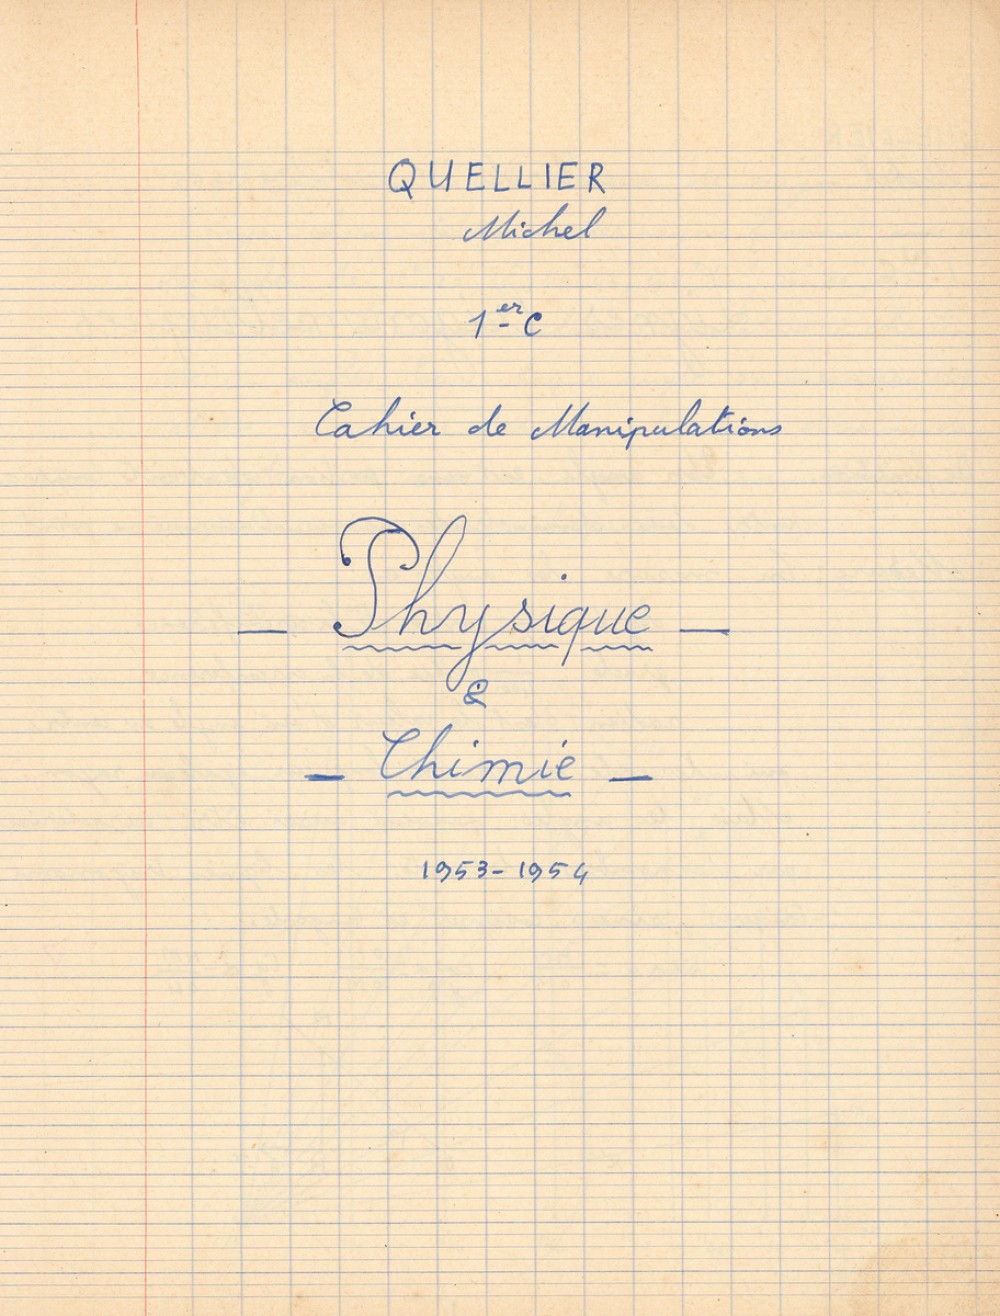 QUELLIER
Michel
1er C
Cahier de Manipulations
— Physique —
&
— Chimie —
1953-1954